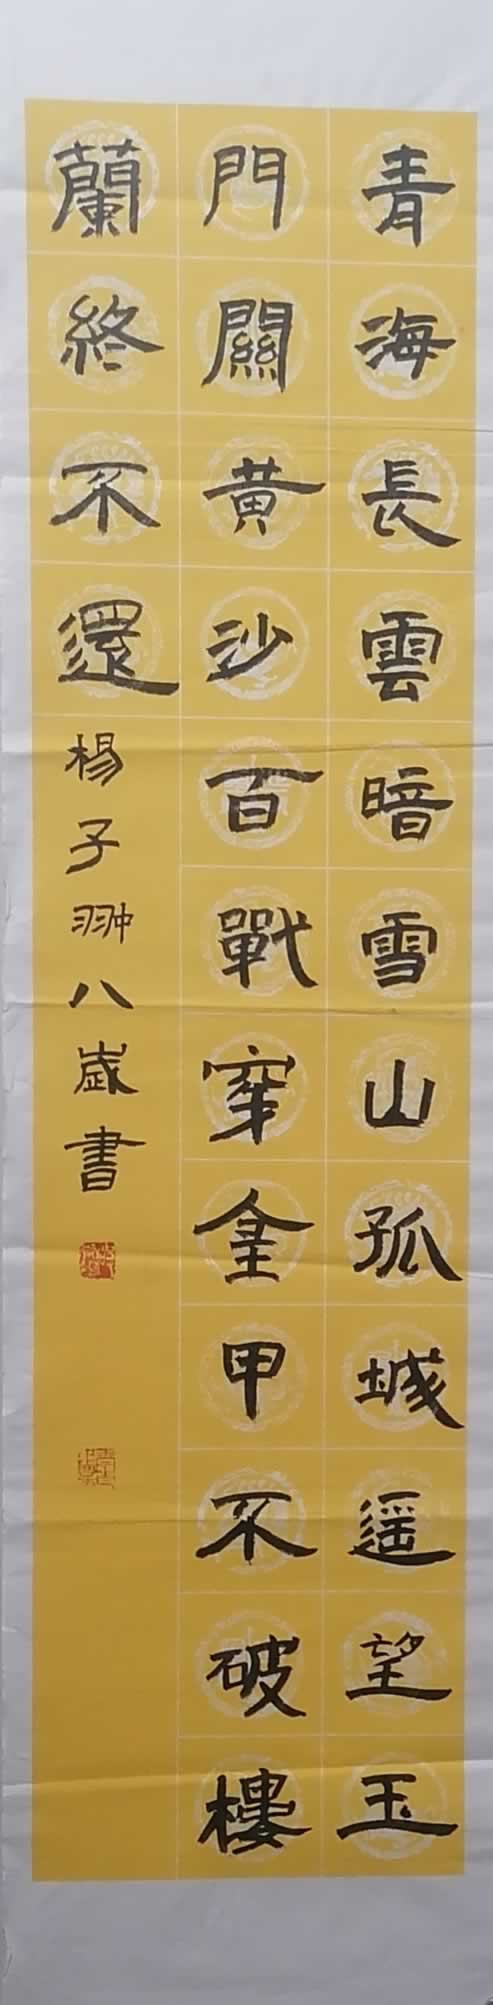 青海長雲暗雪山孤城遥望玉
門關黄沙百戰穿金甲不破樓
蘭終不還
楊子翀八歲書